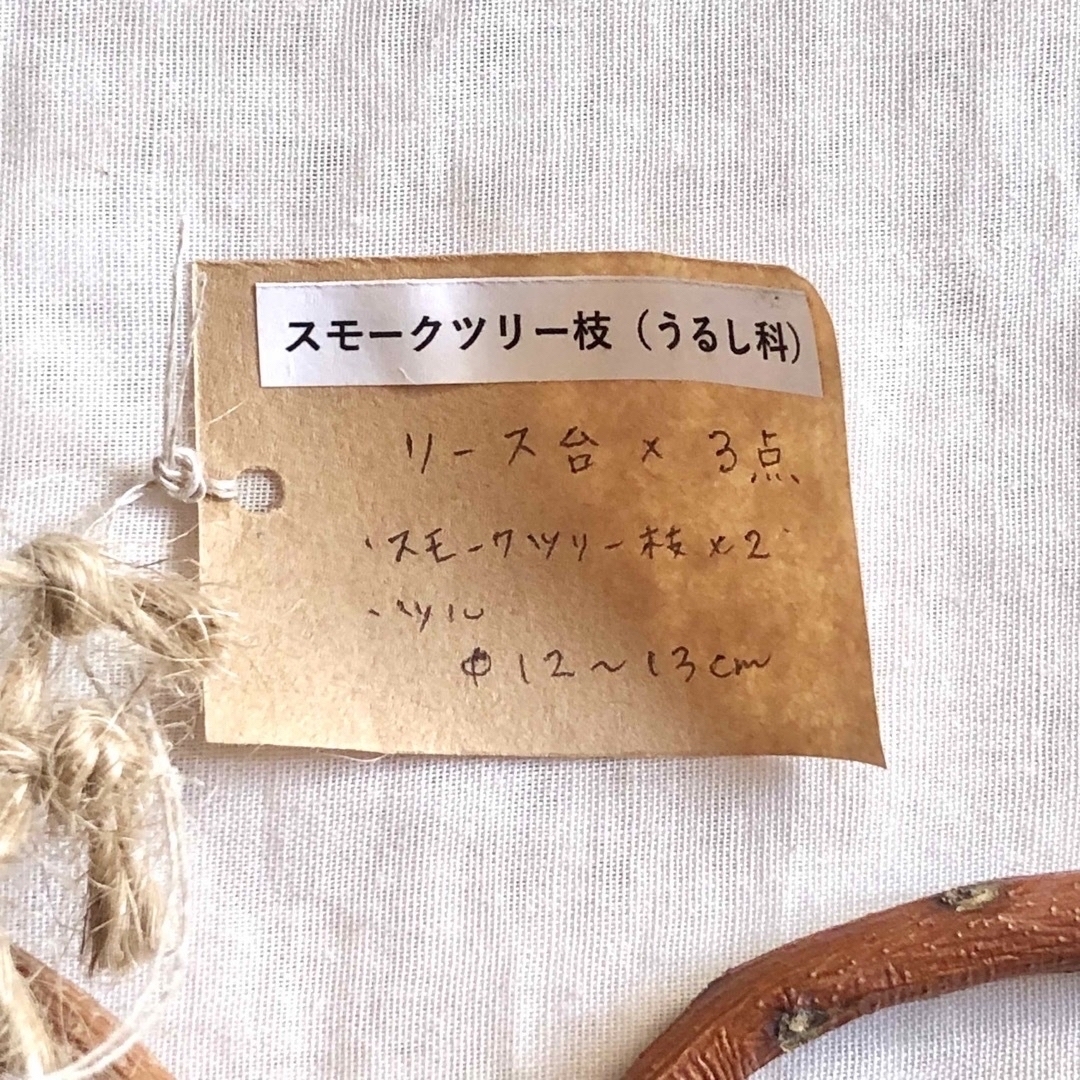 スモークツリー枝（うるし科）
リース台 × 3点
・スモークツリー枝 × 2
・ツル
φ12〜13cm